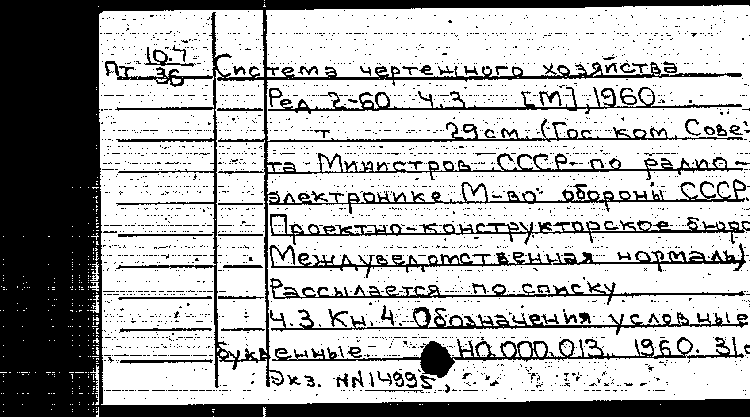 Пт 10.7/36 Система чертежного хозяйства
Ред. 2-60. Ч.3 [М], 1960.
т 29см. (Гос. ком. Сове-
та Министров СССР по радио-
электронике. М-во обороны СССР.
Проектно-конструкторское бюро
Междуведомственная нормаль)
Рассылается по списку
Ч.3. Кн.4. Обозначения условные
буквенные. Н0.000.013. 1960. 31.
Экз. NN14995,